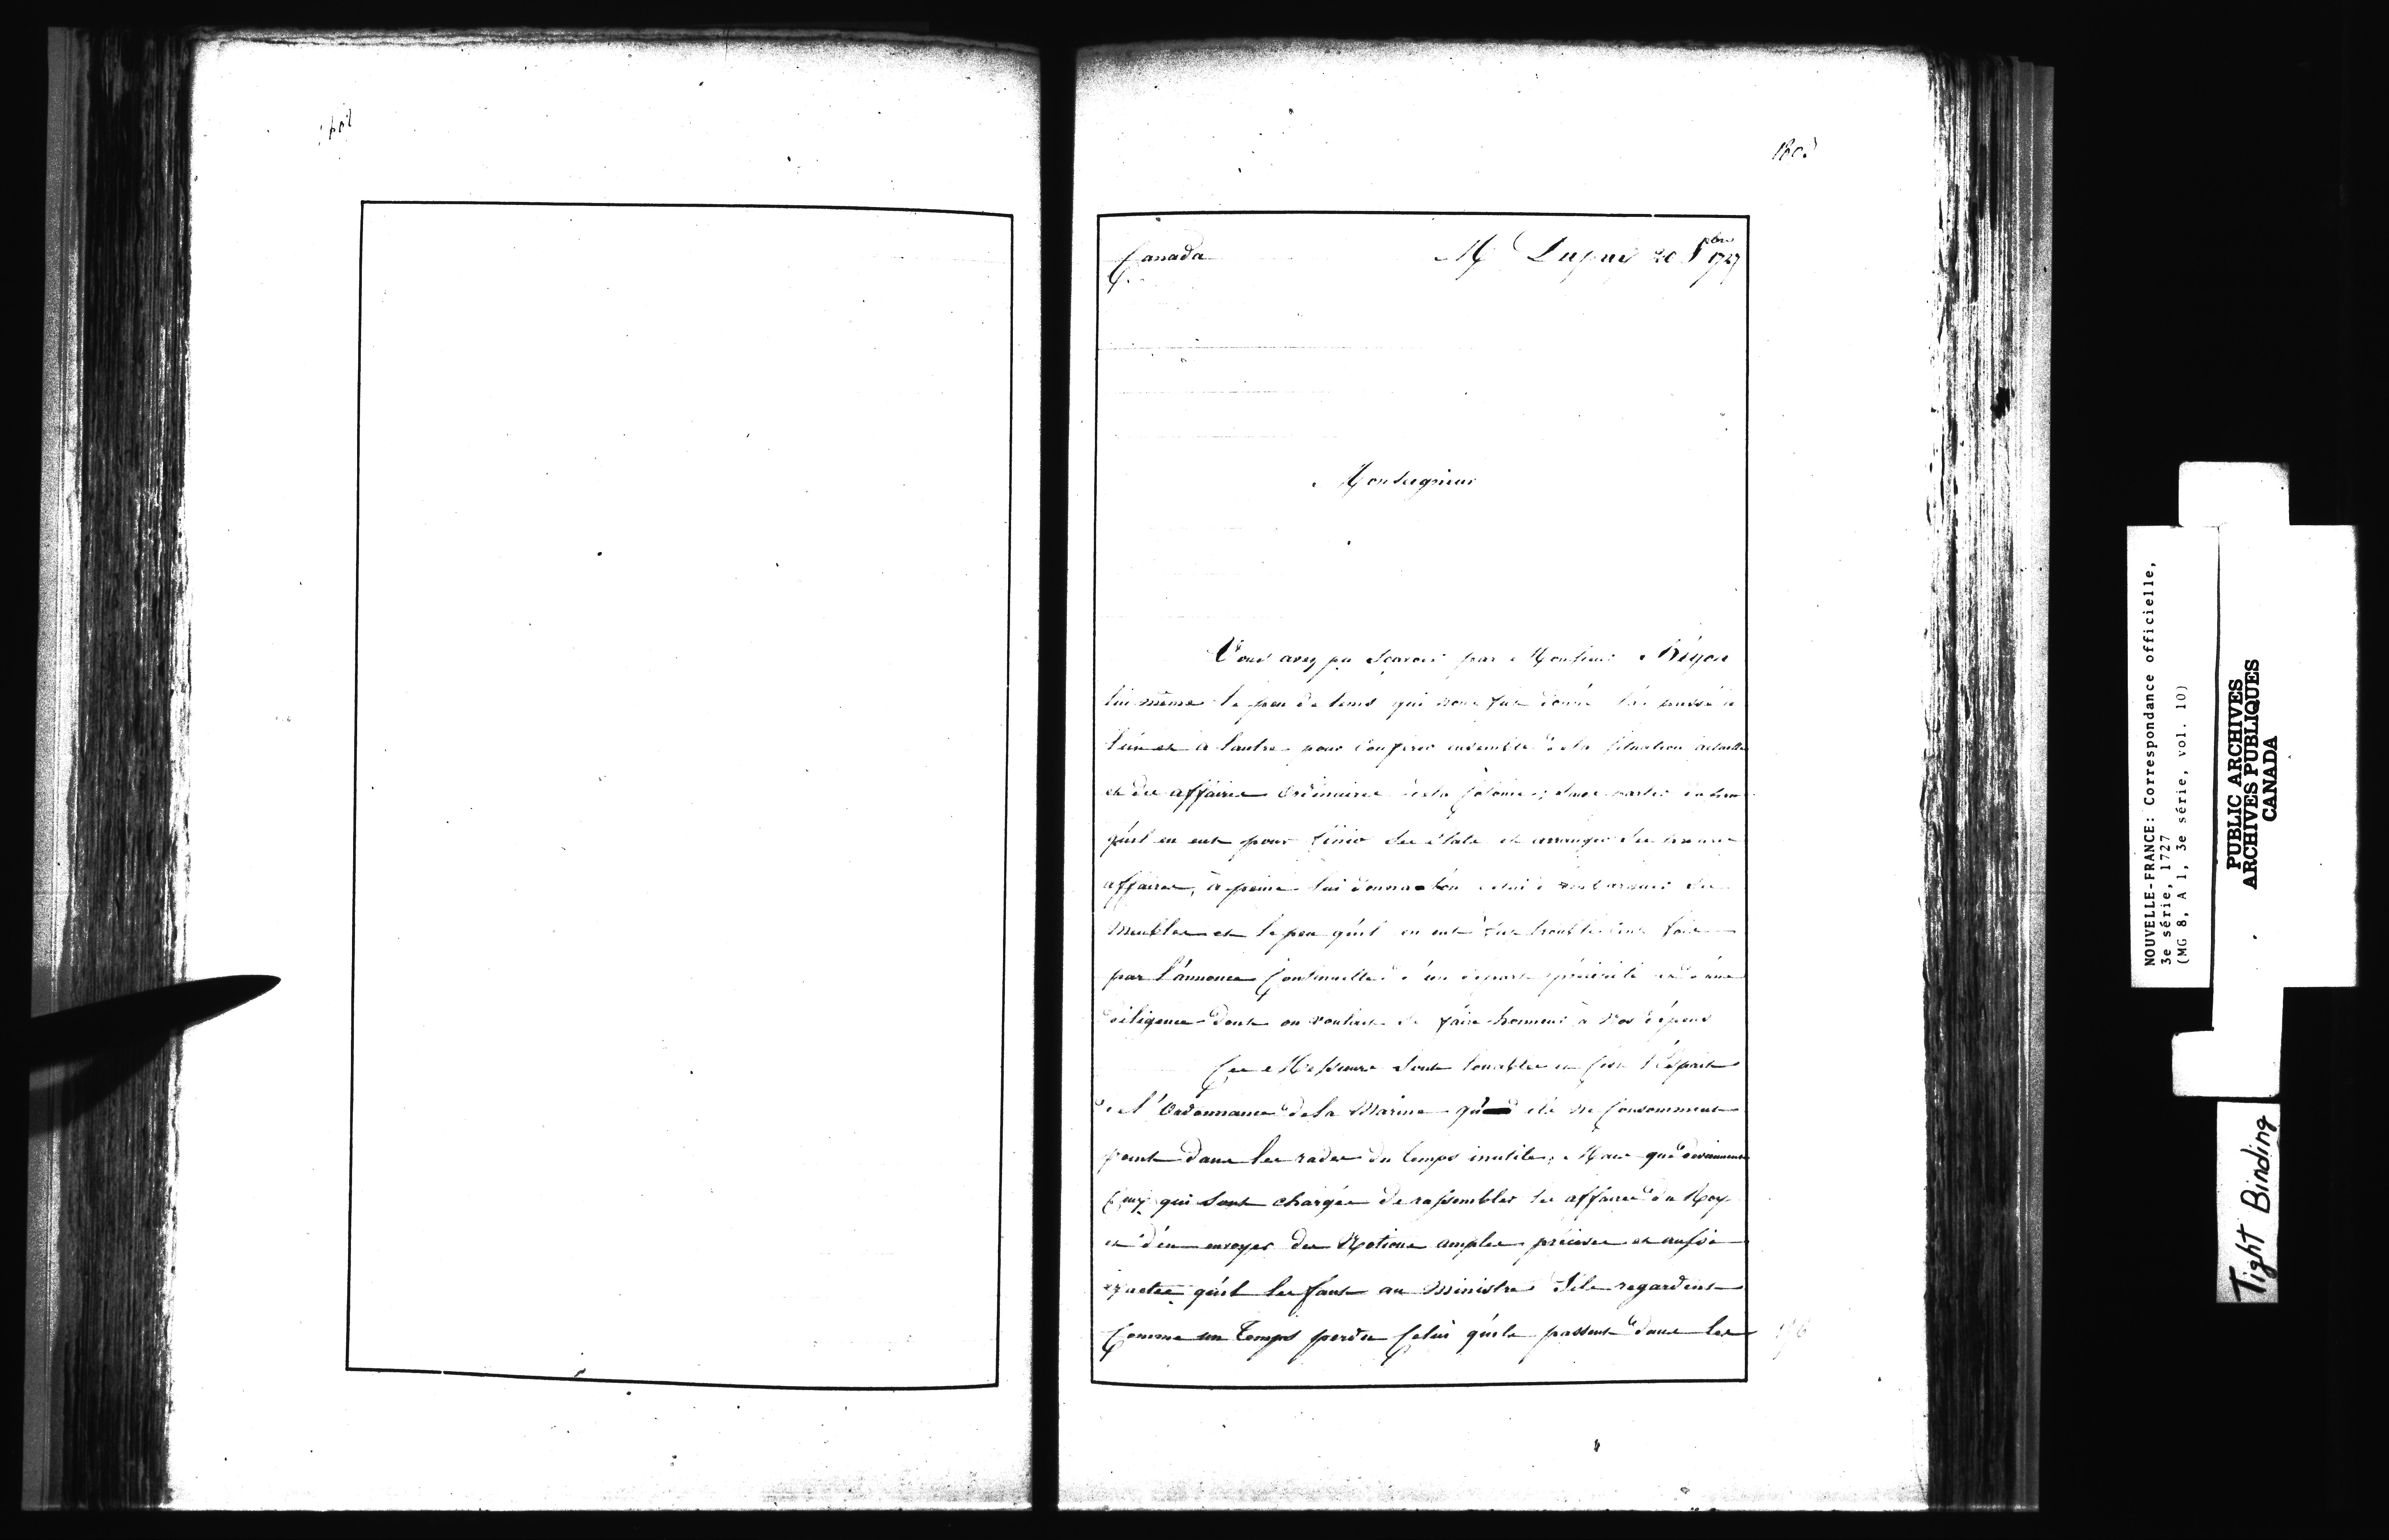 Canada
M. Dupuis 20 8bre 1727
Monseigneur
Vous avez pu sçavoir par Monsieur Bégon
lui même le peu de tems qui nous fut donné l'an passé à
l'un et à l'autre pour Conferer ensemble de la situation actuelle
et des affaires Ordinaires de la Colonie;
qu'il en eut pour finir des états et arranger ses
affaires, à peine lui donna-t'on celui d'embarquer ses
meubles et le peu qu'il en eut fut troublé cent fois
par l'annonce Continuelle d'un départ précipité et d'une
diligence dont on vouloit se faire honneur à nos dépens
Ces Messieurs sont louables et c'est l'esprit
de l'Ordonnance de la Marine qu'ils ne Consomment
point dans les rades du temps inutile; Mais que deviennent
Ceux qui sont chargés de rassembler les affaires du Roy
et d'en envoyer des Notions amples précises et aussi
exactes qu'il les faut au Ministre s'ils regardent
Comme un Temps perdu Celui qu'ils passent dans les
NOUVELLE-FRANCE: Correspondance officielle,
3e série, 1727
(MG 8, A 1, 3e série, vol. 10)
PUBLIC ARCHIVES
ARCHIVES PUBLIQUES
CANADA
Tight Binding